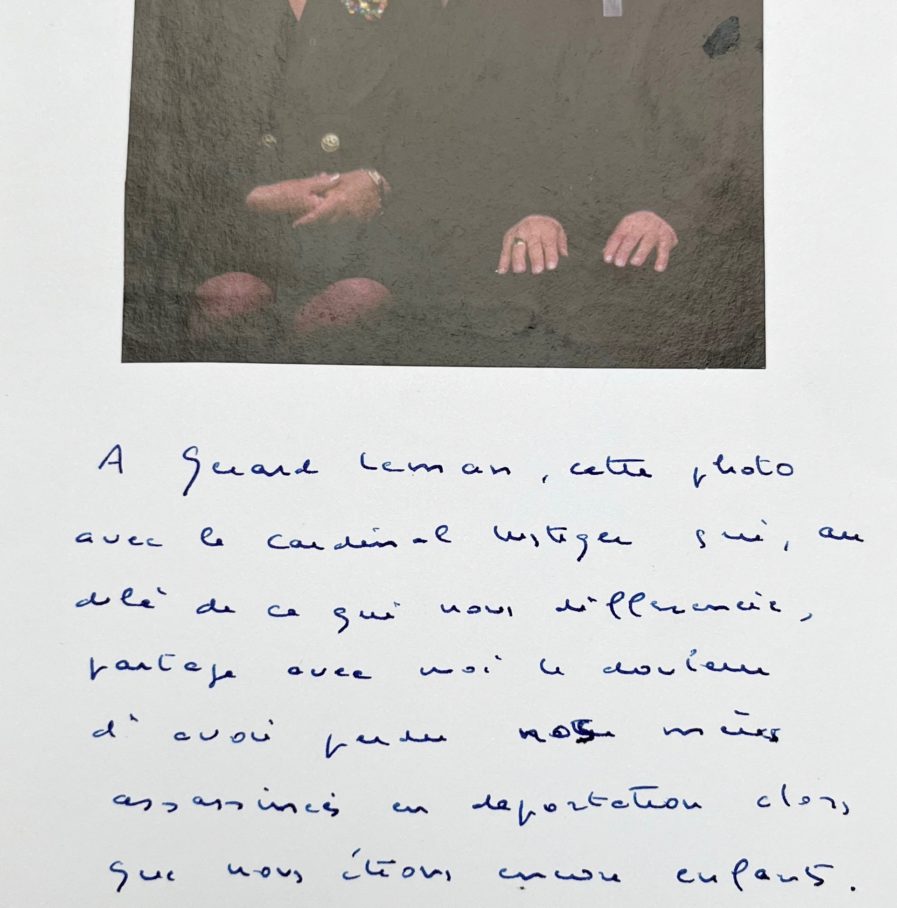 A Gérard Leman, cette photo
avec le cardinal Lustiger qui, au
delà de ce qui nous différencie,
partage avec moi la douleur
d'avoir perdu nos mères
assassinées en déportation alors
que nous étions encore enfants.